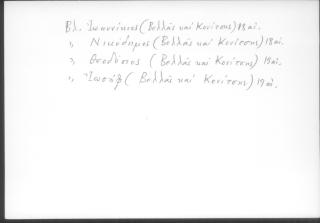 Βλ. Ἰωαννίκιος (Βελλᾶς καί Κονίτσης) 18 αἰ.
〃 Νικόδημος (Βελλᾶς καί Κονίτσης) 18 αἰ.
〃 Θεοδόσιος (Βελλᾶς καί Κονίτσης) 19 αἰ.
〃 Ἰωσήφ (Βελλᾶς καί Κονίτσης) 19 αἰ.